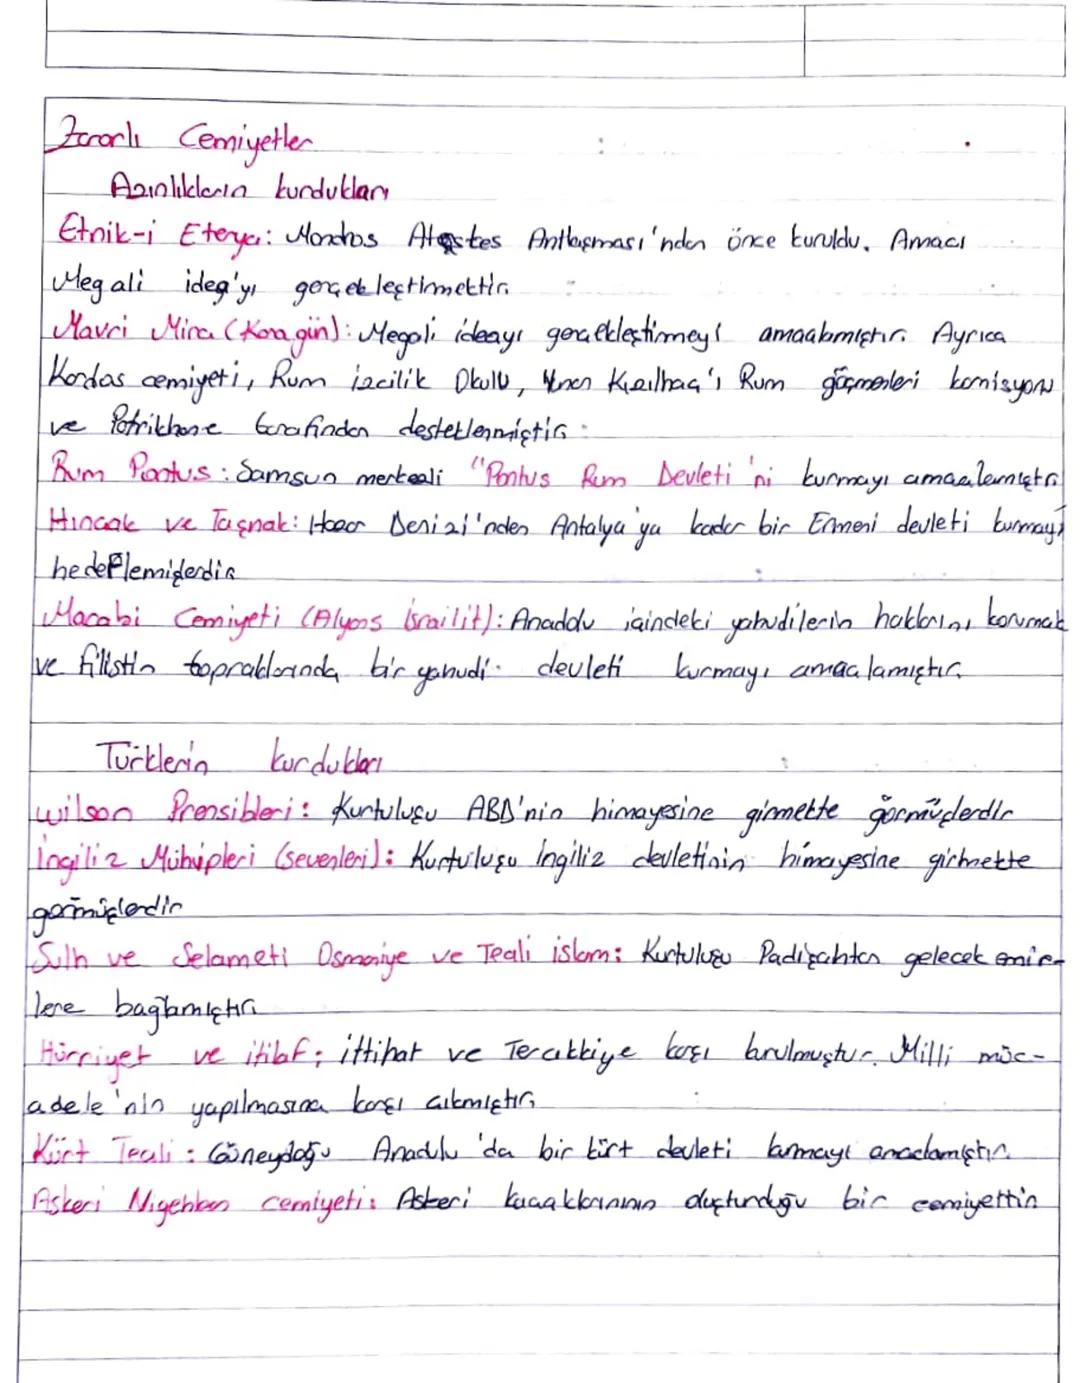 Zararlı Cemiyetler
Azınlıkların kurdukları
Etnik-i Eterya: Mondros Ateşkes Antlaşması'ndan önce kuruldu. Amacı
Megali idea'yı gerçekleştirmektir.
Mavri Mira (Kara gün): Megali ideayı gerçekleştirmeyi amaçlamıştır. Ayrıca
Kordos cemiyeti, Rum izcilik Okulu, Yunan Kızılhaç'ı Rum göçmenleri komisyonu
ve Patrikhane tarafından desteklenmiştir.
Rum Pontus: Samsun merkezli "Pontus Rum Devleti'ni kurmayı amaçlamıştır
Hıncak ve Taşnak: Hazar Denizi'nden Antalya'ya kadar bir Ermeni devleti kurmayı
hedeflemişlerdir
Macabi Cemiyeti (Alyans İsrailit): Anadolu içindeki yahudilerin haklarını korumak
ve filistin topraklarında bir yahudi devleti kurmayı amaçlamıştır.
Türklerin kurdukları
Wilson Prensibleri: Kurtuluşu ABD'nin himayesine girmekte görmüşlerdir
İngiliz Muhipleri (sevenleri): Kurtuluşu İngiliz devletinin himayesine girmekte
görmüşlerdir
Sulh ve Selameti Osmaniye ve Teali islam: Kurtuluşu Padişahtan gelecek emir-
lere bağlamıştır.
Hürriyet ve itilaf: ittihat ve Terakkiye karşı kurulmuştur. Milli müc-
adele'nin yapılmasına karşı çıkmıştır
Kürt Teali: Güneydoğu Anadolu'da bir kürt devleti kurmayı amaçlamıştır.
Askeri Nigehban cemiyeti: Askeri kaçaklarının oluşturduğu bir cemiyettir